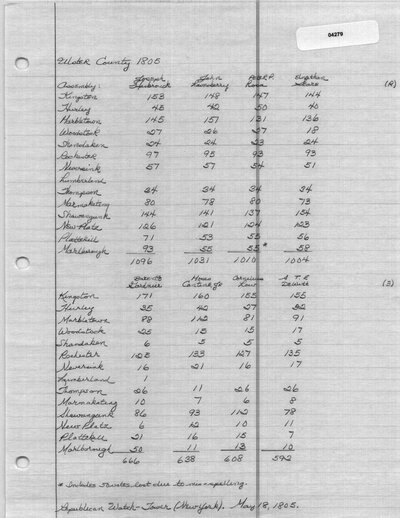 04279
Ulster County 1805
Joseph John Peter P.
Assembly: Hasbrouck Lounsberry Roosa (R)
Kingston 153 148 147 144
Hurley 43 42 50 40
Marbletown 145 157 131 136
Woodstock 27 26 27 18
Shandaken 24 24 23 24
Rochester 97 95 93 93
Neversink 57 57 54 51
Lumberland
Thompson 34 34 34 34
Mamakating 80 78 80 73
Shawangunk 144 141 137 154
New Paltz 126 121 124 123
Plattekill 71 53 55 56
Marlborough 93 55 55* 58
1096 1031 1010 1004
Moses Cornelius
Gardner Cantine Jr (3)
Kingston 171 160 155 155
Hurley 35 42 27 32
Marbletown 88 112 81 91
Woodstock 25 15 15 17
Shandaken 6 5 5 5
Rochester 125 133 127 135
Neversink 16 21 16 17
Lumberland 1
Thompson 26 11 26 26
Mamakating 10 7 6 8
Shawangunk 86 93 112 78
New Paltz 6 12 10 11
Plattekill 21 16 15 7
Marlborough 50 11 13 10
666 638 608 592
* Includes 50 votes lost due to mis-spelling.
Republican Watch-Tower (New York). May 18, 1805.